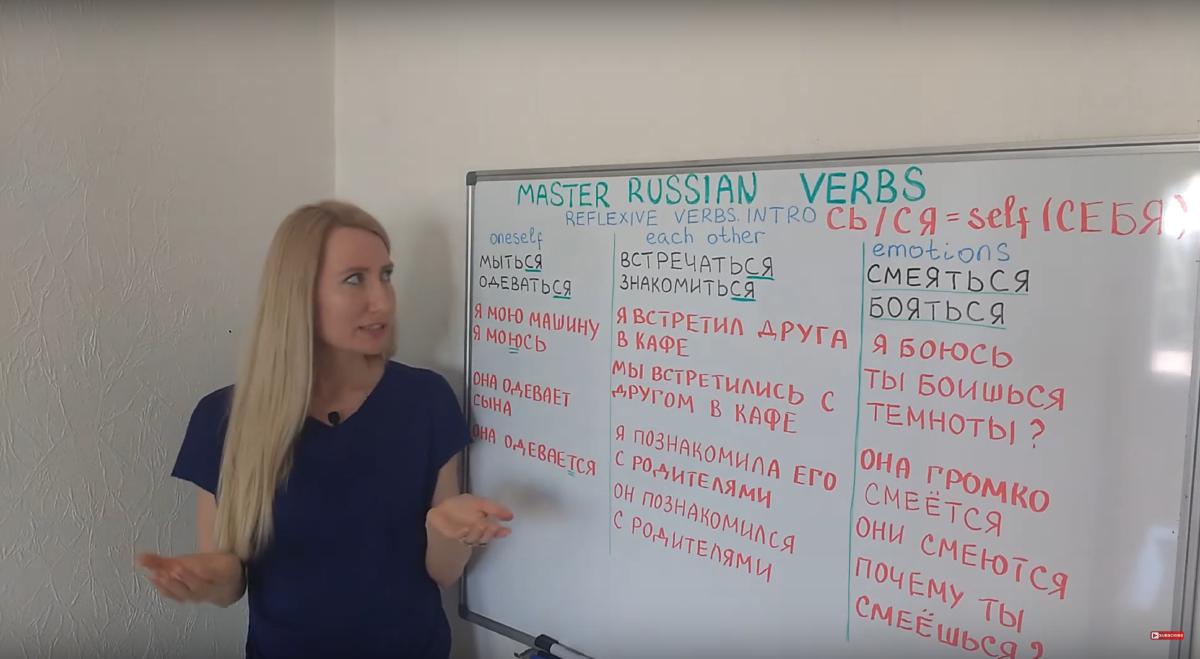 MASTER RUSSIAN VERBS
REFLEXIVE VERBS. INTRO СЬ/СЯ = self (СЕБЯ)
oneself
МЫТЬСЯ
ОДЕВАТЬСЯ
Я МОЮ МАШИНУ
Я МОЮСЬ
ОНА ОДЕВАЕТ
СЫНА
ОНА ОДЕВАЕТСЯ
each other
ВСТРЕЧАТЬСЯ
ЗНАКОМИТЬСЯ
Я ВСТРЕТИЛ ДРУГА
В КАФЕ
МЫ ВСТРЕТИЛИСЬ С
ДРУГОМ В КАФЕ
Я ПОЗНАКОМИЛА ЕГО
С РОДИТЕЛЯМИ
ОН ПОЗНАКОМИЛСЯ
С РОДИТЕЛЯМИ
emotions
СМЕЯТЬСЯ
БОЯТЬСЯ
Я БОЮСЬ
ТЫ БОИШЬСЯ
ТЕМНОТЫ?
ОНА ГРОМКО
СМЕЁТСЯ
ОНИ СМЕЮТСЯ
ПОЧЕМУ ТЫ
СМЕЁШЬСЯ?
SUBSCRIBE